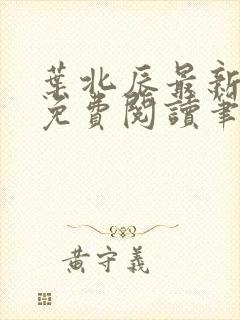 葉北辰最新
免費閱讀筆
黃守義